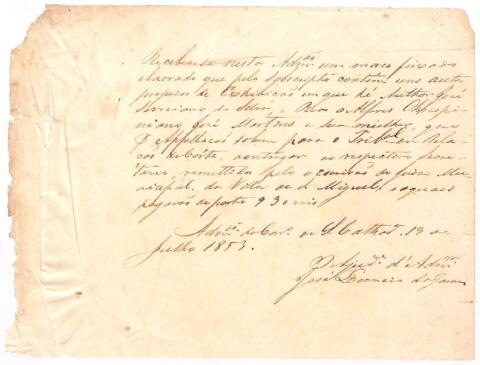 Recebeu-se nesta Admção um maço fixado
e lacrado que pelo sobscripto contem uns autos
proprios de Exhibicão em que hé Author José
da Silva, e Reo o Alferes
José Martins e sua mulher, que
p. Appellação sobem para o Tribal da Rela-
ção da Corte, a entregar ao respectivo Secre-
tario, remettida pelo escrivão do juizo Mu-
nicipal da Villa de S. Miguel, os quaes
pagarão de porte 930 reis
Admção do Corro de Sta Catha 13 de
Julho 1853.
O Ajude d'Admção
José da Gama